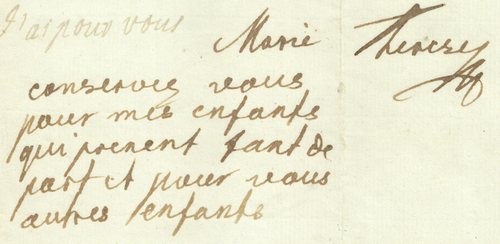 j'ai pour vous
Marie Therese
conserves vous
pour mes enfants
qui prenent tant de
part et pour vous
autres enfants